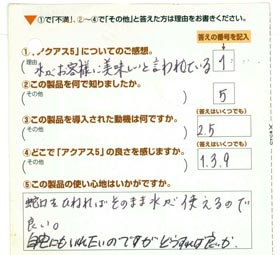 ▼①で「不満」、②～④で「その他」と答えた方は理由をお書きください。
答えの番号を記入
①「アクアス5」についてのご感想。
(理由 水がお客様に美味しいと言われている) 1
②この製品を何で知りましたか。
(その他 ) 5
③この製品を導入された動機は何ですか。
(答えはいくつでも)
(その他 ) 2.5
④どこで「アクアス5」の良さを感じますか。
(答えはいくつでも)
(その他 ) 1.3.9
⑤この製品の使い心地はいかがですか。
蛇口をひねればそのまま水が使えるので
良い。
自宅にもいれたいのですがどうすれば良いか。